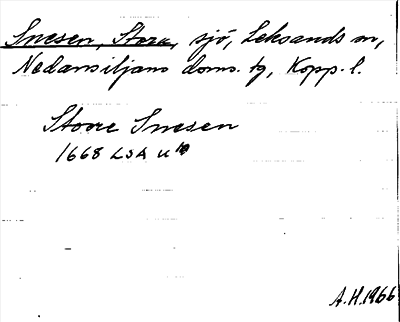 Snesen, Stora, sjö, Leksands sn,
Nedansiljans doms. tg, Kopp. l.
Stoore Snesen
1668 LSA U 10
A.H.1966